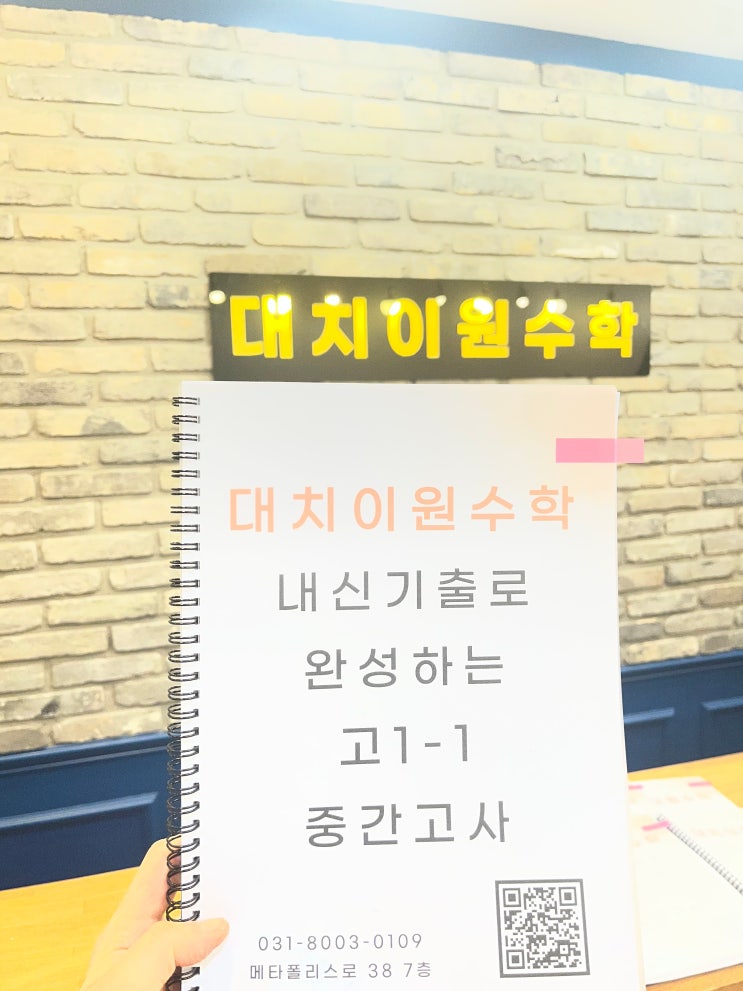 대치이원수학
대치이원수학
내신기출로
완성하는
고1-1
중간고사
031-8003-0109
메타폴리스로 38 7층